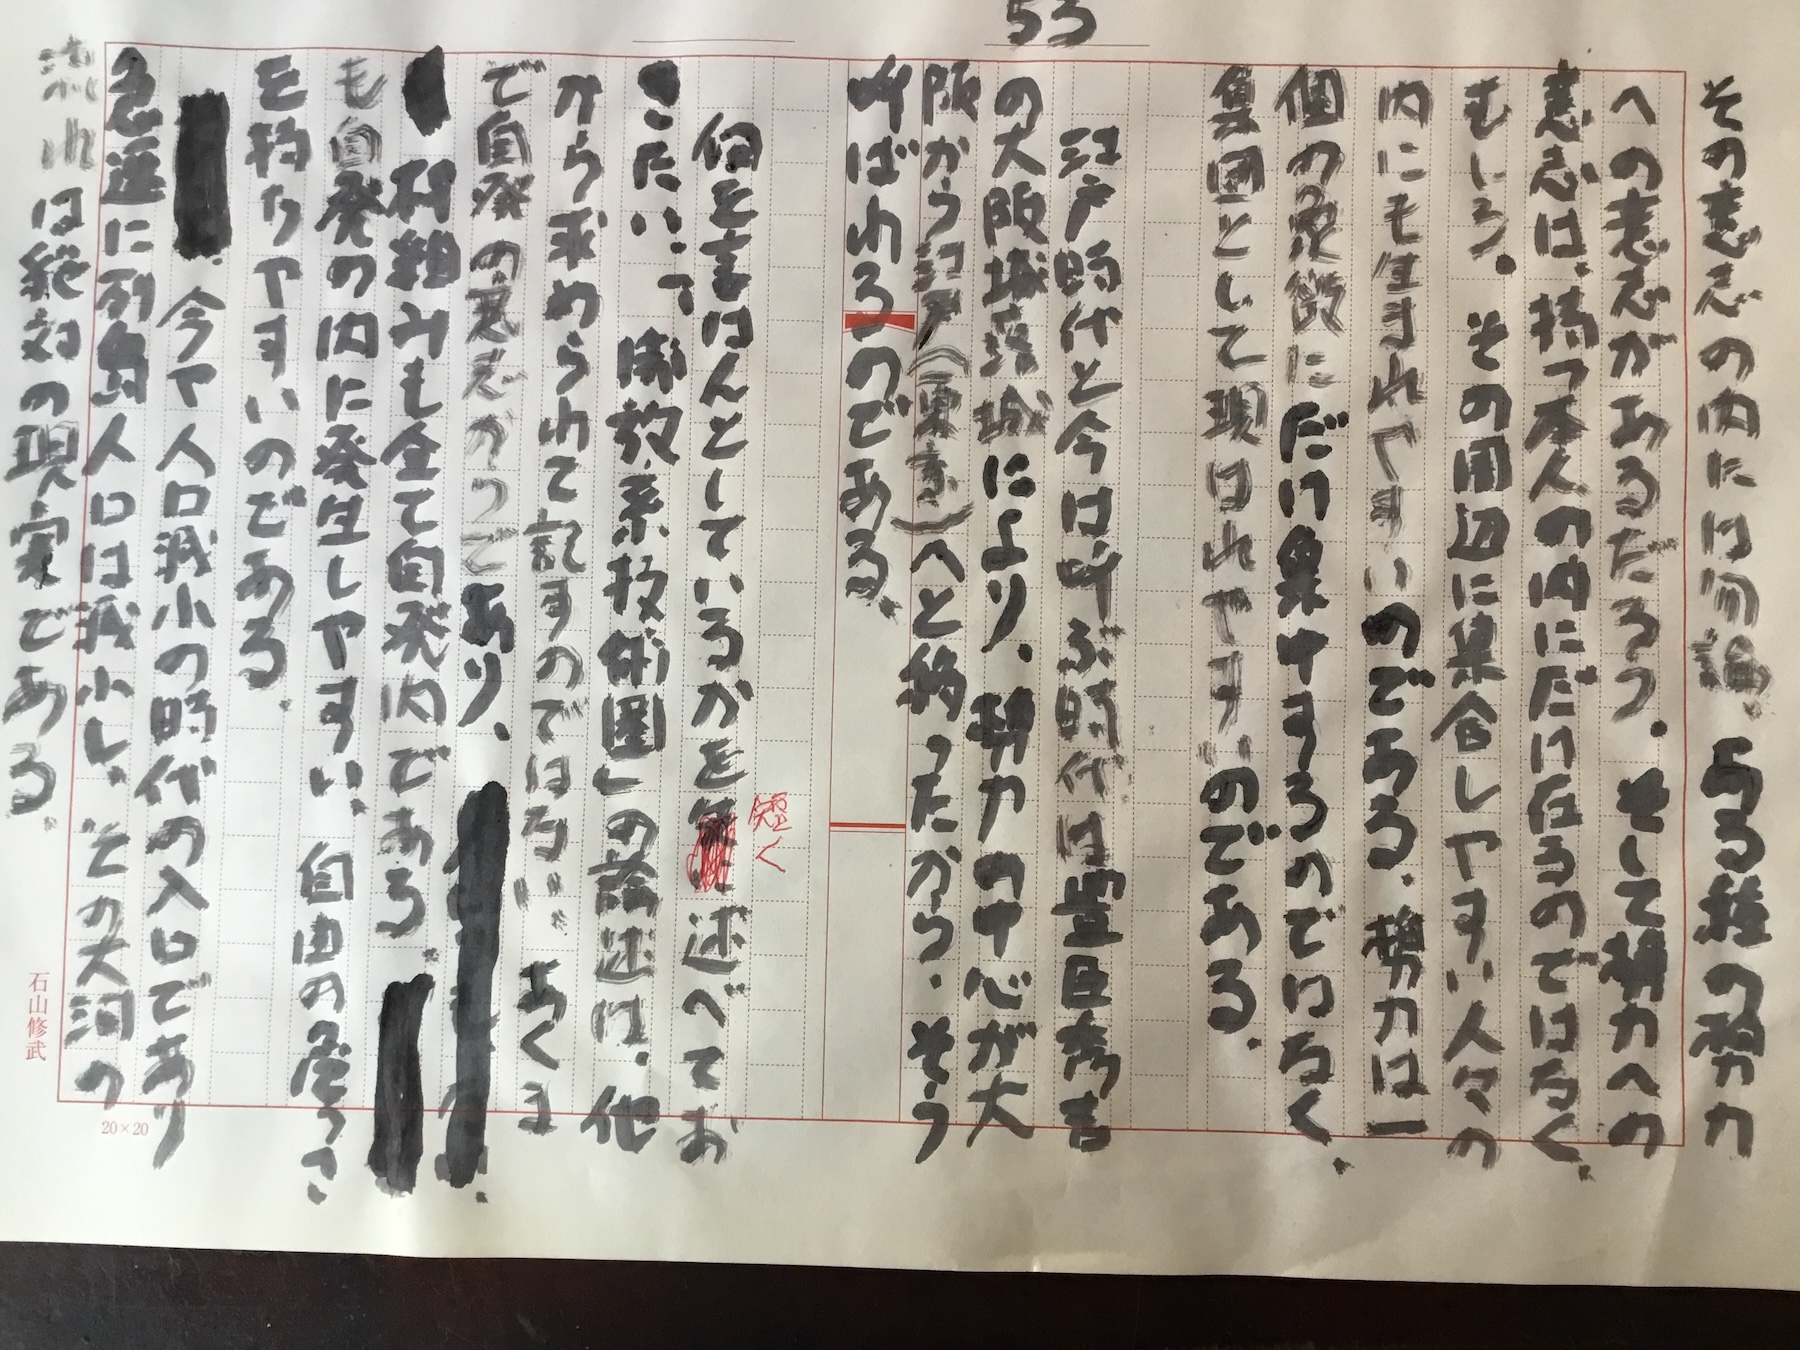 53
その意志の内には勿論、与る種の努力
への意志があるだろう。そして努力への
意志は、持つ本人の内にだけ在るのではなく、
むしろ。その周辺に集合しやすい人々の
内にも生まれやすいのである。努力は一
個の象徴にだけ集中するのではなく、
集団として現はれやすいのである。
江戸時代と今は呼ぶ時代は豊臣秀吉
の大阪城落城により、努力の中心が大
阪から江戸(東京)へと移ったから、そう
呼ばれるのである。
何を言はんとしているかを短く述べてお
きたい、て 開放系技術圏」の論述は、他
から求められて記すのではない、あくま
で自発の意志からであり、
枠組みも全て自発内である。
も自発の内に発生しやすい、自由の危うさ
を持ちやすいのである。
今や人口減小の時代の入口であり
急速に列島人口は減小し、その大河の
流れは絶対の現実である。
石山修武
20×20